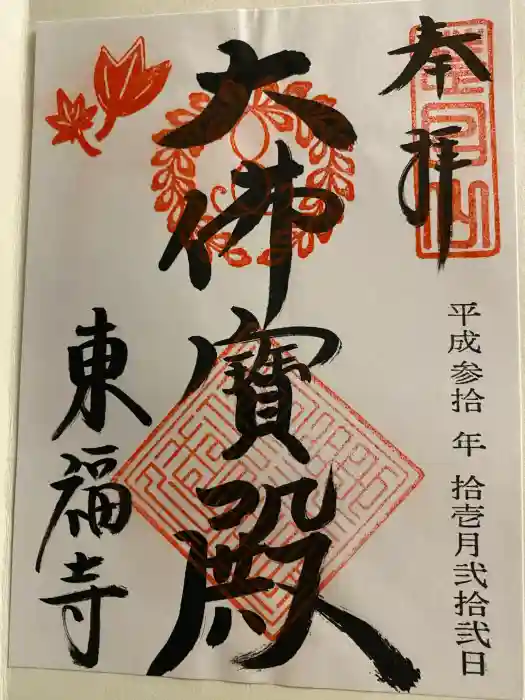 奉拝
平成参拾年 拾壱月弐拾弐日
大佛寶殿
東福寺